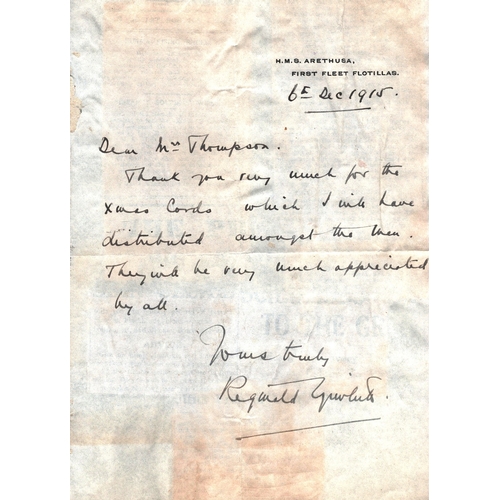 H.M.S. ARETHUSA,
FIRST FLEET FLOTILLAS.
6th Dec 1915.
Dear Mrs Thompson.
Thank you very much for the
Xmas Cards which I will have
distributed amongst the Men.
They will be very much appreciated
by all.
Yours truly
Reginald Tyrwhitt.